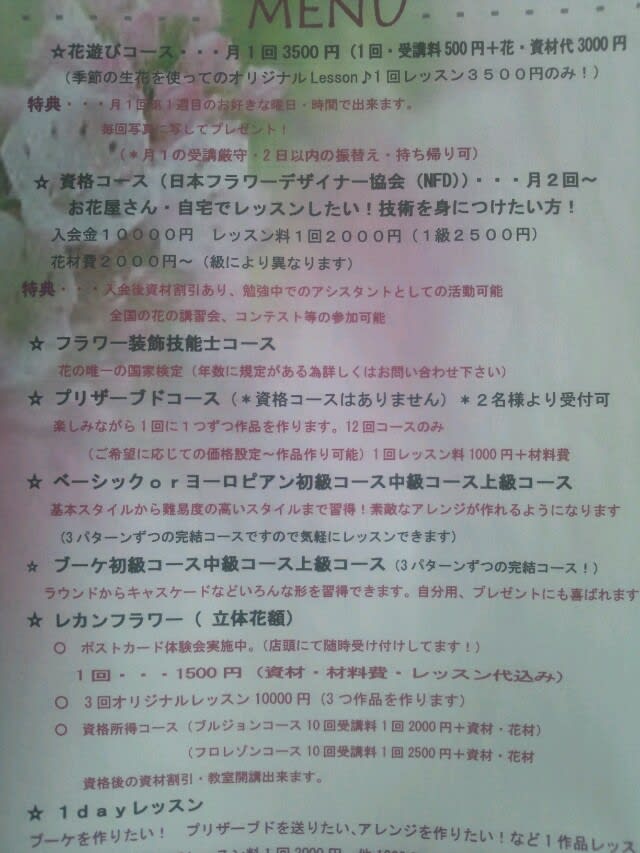 MENU
☆花遊びコース・・・月１回3500円（1回・受講料500円＋花・資材代3000円
（季節の生花を使ってのオリジナルLesson♪1回レッスン３５００円のみ！）
特典・・・月１回第１週目のお好きな曜日・時間で出来ます。
毎回写真に写してプレゼント！
（＊月１の受講厳守・２日以内の振替え・持ち帰り可）
☆ 資格コース（日本フラワーデザイナー協会（NFD））・・・月２回～
お花屋さん・自宅でレッスンしたい！技術を身につけたい方！
入会金１００００円　レッスン料１回２０００円（１級２５００円）
花材費２０００円～（級により異なります）
特典・・・入会後資材割引あり、勉強中でのアシスタントとしての活動可能
全国の花の講習会、コンテスト等の参加可能
☆ フラワー装飾技能士コース
花の唯一の国家検定（年数に規定がある為詳しくはお問い合わせ下さい）
☆ プリザーブドコース（＊資格コースはありません）＊２名様より受付可
楽しみながら１回に１つずつ作品を作ります。12回コースのみ
（ご希望に応じての価格設定～作品作り可能）１回レッスン料1000円＋材料費
☆ ベーシックｏｒヨーロピアン初級コース中級コース上級コース
基本スタイルから難易度の高いスタイルまで習得！素敵なアレンジが作れるようになります
（3パターンずつの完結コースですので気軽にレッスンできます）
☆ ブーケ初級コース中級コース上級コース（3パターンずつの完結コース！）
ラウンドからキャスケードなどいろんな形を習得できます。自分用、プレゼントにも喜ばれます
☆ レカンフラワー（ 立体花額）
○ ポストカード体験会実施中。（店頭にて随時受け付けしてます！）
１回・・・1500円（資材・材料費・レッスン代込み）
○ 3回オリジナルレッスン10000円（３つ作品を作ります）
○ 資格所得コース（ブルジョンコース10回受講料1回2000円＋資材・花材）
（フロレゾンコース10回受講料1回2500円＋資材・花材
資格後の資材割引・教室開講出来ます。
☆ １ｄａｙレッスン
ブーケを作りたい！　プリザーブドを送りたい、アレンジを作りたい！など１作品レッス